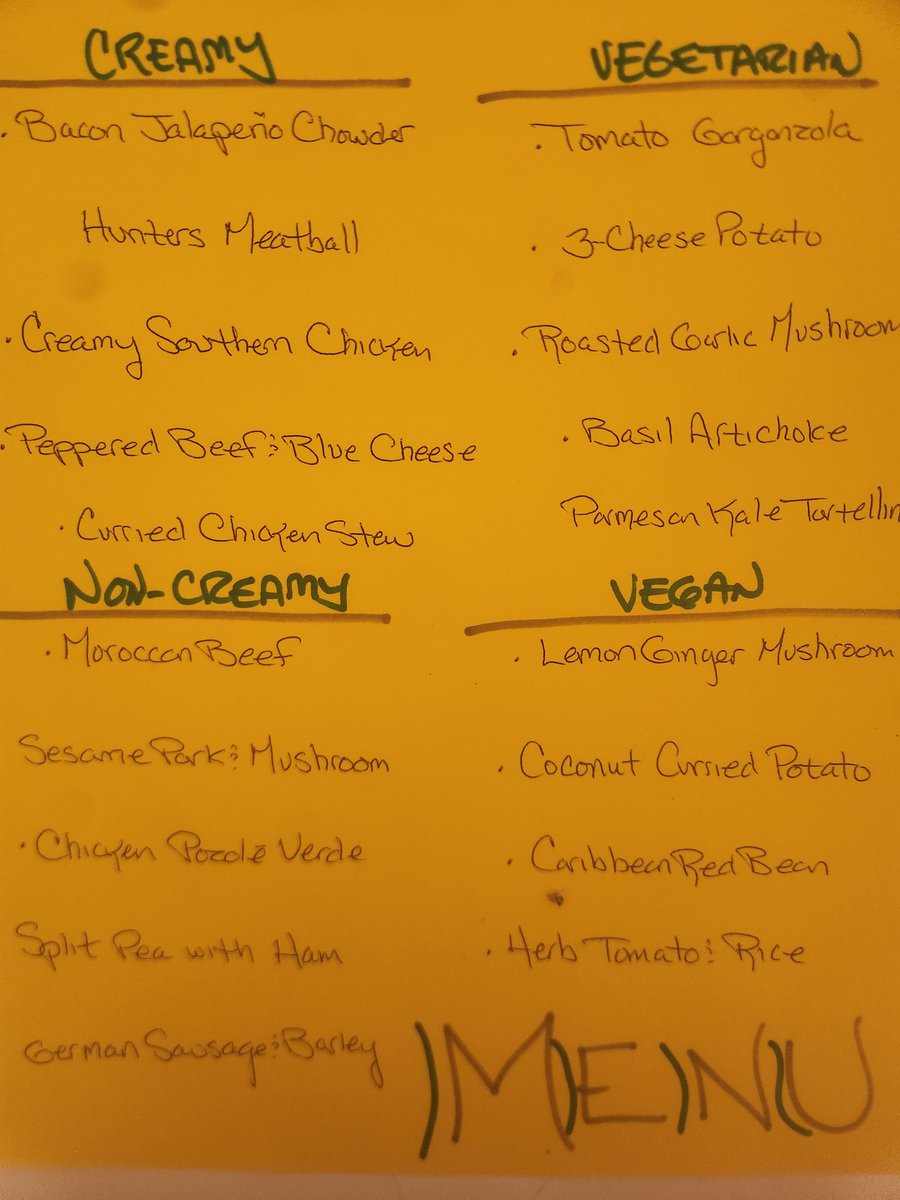 CREAMY
· Bacon Jalapeño Chowder
Hunters Meatball
· Creamy Southern Chicken
· Peppered Beef & Blue Cheese
· Curried Chicken Stew
NON-CREAMY
· Moroccan Beef
Sesame Pork & Mushroom
· Chicken Pozolé Verde
Split Pea with Ham
German Sausage & Barley
VEGETARIAN
· Tomato Gorgonzola
· 3-Cheese Potato
· Roasted Garlic Mushroom
· Basil Artichoke
Parmesan Kale Tortellin
VEGAN
· Lemon Ginger Mushroom
· Coconut Curried Potato
· Caribbean Red Bean
· Herb Tomato & Rice
MENU